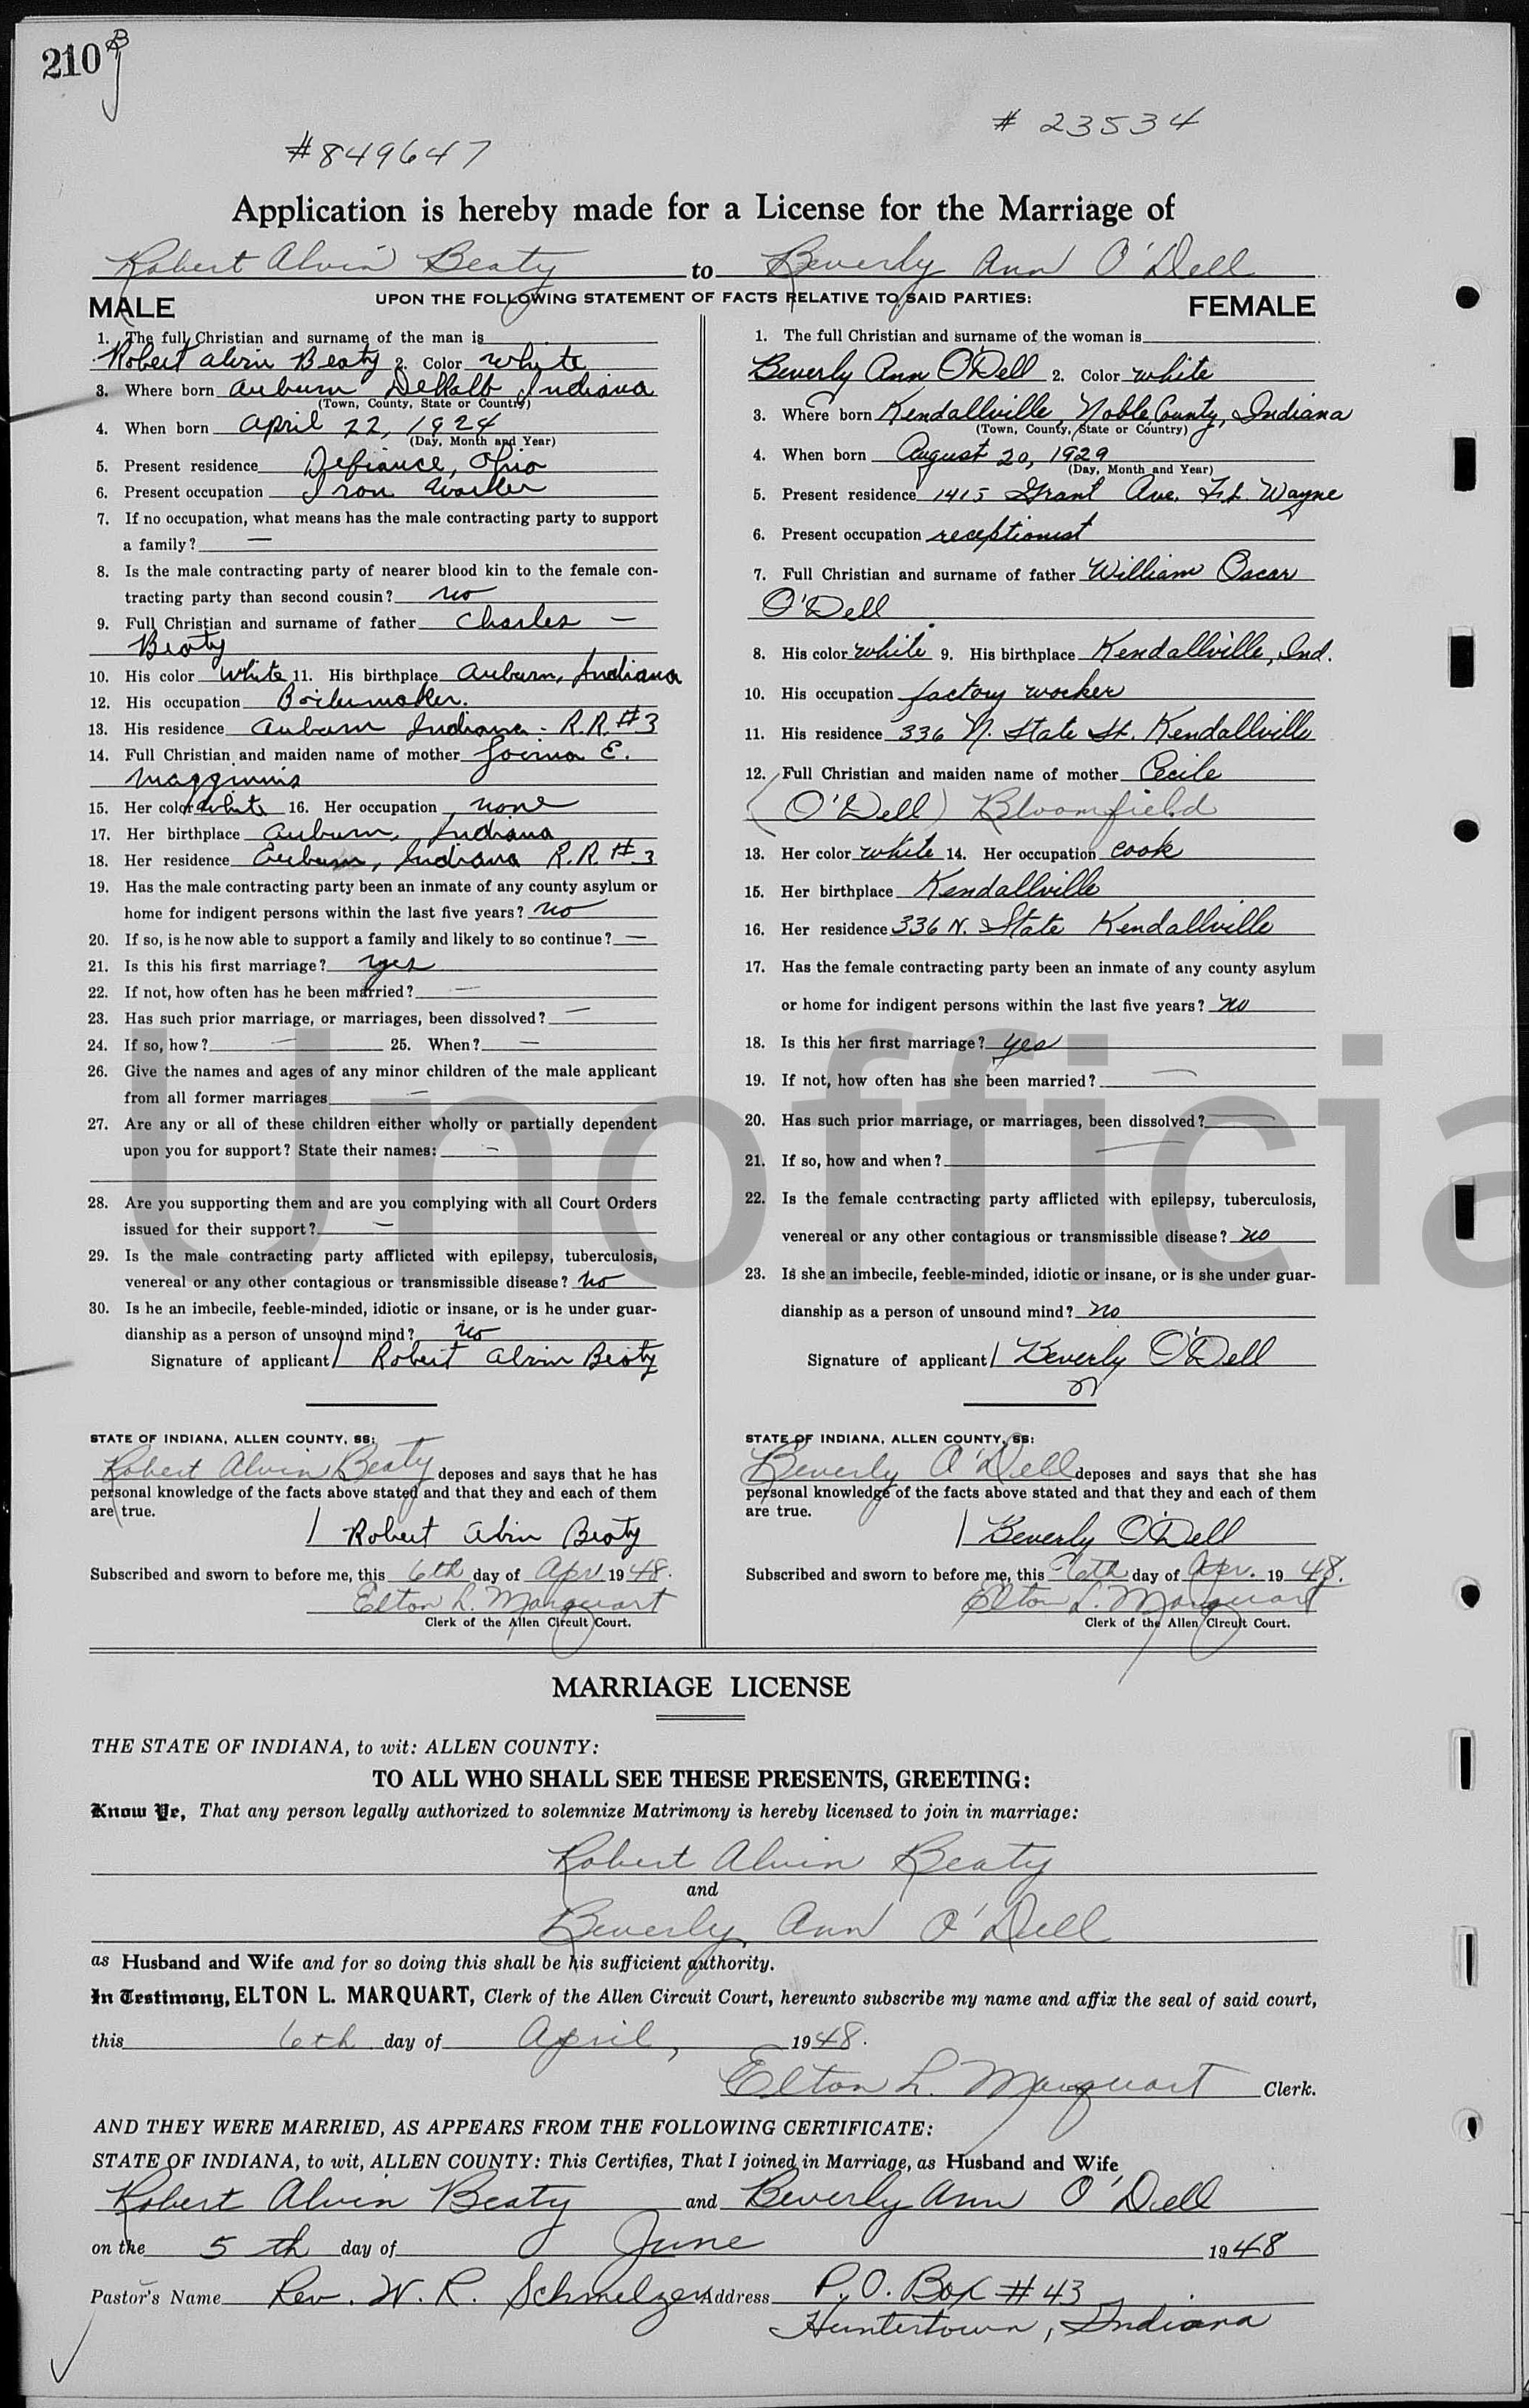 210 B
# 23534
#849647
Application is hereby made for a License for the Marriage of
Robert Alvin Beaty to Beverly Ann O'Dell
MALE UPON THE FOLLOWING STATEMENT OF FACTS RELATIVE TO SAID PARTIES: FEMALE
1. The full Christian and surname of the man is
Robert Alvin Beaty 2. Color white
3. Where born Auburn DeKalb Indiana
(Town, County, State or Country)
4. When born April 22, 1924
(Day, Month and Year)
5. Present residence Defiance, Ohio
6. Present occupation Iron Worker
7. If no occupation, what means has the male contracting party to support
a family? —
8. Is the male contracting party of nearer blood kin to the female con-
tracting party than second cousin? no
9. Full Christian and surname of father Charles —
Beaty
10. His color white 11. His birthplace Auburn, Indiana
12. His occupation Boilermaker.
13. His residence Auburn Indiana - R.R. #3
14. Full Christian and maiden name of mother E.
Magginnis
15. Her color white 16. Her occupation none
17. Her birthplace Auburn, Indiana
18. Her residence Auburn, Indiana R.R. #3
19. Has the male contracting party been an inmate of any county asylum or
home for indigent persons within the last five years? no
20. If so, is he now able to support a family and likely to so continue? —
21. Is this his first marriage? yes
22. If not, how often has he been married? —
23. Has such prior marriage, or marriages, been dissolved? —
24. If so, how? — 25. When? —
26. Give the names and ages of any minor children of the male applicant
from all former marriages —
27. Are any or all of these children either wholly or partially dependent
upon you for support? State their names: —
28. Are you supporting them and are you complying with all Court Orders
issued for their support? —
29. Is the male contracting party afflicted with epilepsy, tuberculosis,
venereal or any other contagious or transmissible disease? no
30. Is he an imbecile, feeble-minded, idiotic or insane, or is he under guar-
dianship as a person of unsound mind? no
Signature of applicant / Robert Alvin Beaty
STATE OF INDIANA, ALLEN COUNTY, SS:
Robert Alvin Beaty deposes and says that he has
personal knowledge of the facts above stated and that they and each of them
are true.
/ Robert Alvin Beaty
Subscribed and sworn to before me, this 6th day of Apr. 1948.
Elton L. Marquart
Clerk of the Allen Circuit Court.
1. The full Christian and surname of the woman is
Beverly Ann O'Dell 2. Color white
3. Where born Kendallville, Noble County, Indiana
(Town, County, State or Country)
4. When born August 20, 1929
(Day, Month and Year)
5. Present residence 1415 Grant Ave. Ft. Wayne
6. Present occupation receptionist
7. Full Christian and surname of father William Oscar
O'Dell
8. His color white 9. His birthplace Kendallville, Ind.
10. His occupation factory worker
11. His residence 336 N. State St. Kendallville
12. Full Christian and maiden name of mother Cecile
(O'Dell) Bloomfield
13. Her color white 14. Her occupation cook
15. Her birthplace Kendallville
16. Her residence 336 N. State Kendallville
17. Has the female contracting party been an inmate of any county asylum
or home for indigent persons within the last five years? no
18. Is this her first marriage? yes
19. If not, how often has she been married? —
20. Has such prior marriage, or marriages, been dissolved? —
21. If so, how and when? —
22. Is the female contracting party afflicted with epilepsy, tuberculosis,
venereal or any other contagious or transmissible disease? no
23. Is she an imbecile, feeble-minded, idiotic or insane, or is she under guar-
dianship as a person of unsound mind? no
Signature of applicant / Beverly O'Dell
STATE OF INDIANA, ALLEN COUNTY, SS:
Beverly O'Dell deposes and says that she has
personal knowledge of the facts above stated and that they and each of them
are true.
/ Beverly O'Dell
Subscribed and sworn to before me, this 6th day of Apr. 1948.
Elton L. Marquart
Clerk of the Allen Circuit Court.
Unofficia
MARRIAGE LICENSE
THE STATE OF INDIANA, to wit: ALLEN COUNTY:
TO ALL WHO SHALL SEE THESE PRESENTS, GREETING:
Know Ye, That any person legally authorized to solemnize Matrimony is hereby licensed to join in marriage:
Robert Alvin Beaty
and
Beverly Ann O'Dell
as Husband and Wife and for so doing this shall be his sufficient authority.
In Testimony, ELTON L. MARQUART, Clerk of the Allen Circuit Court, hereunto subscribe my name and affix the seal of said court,
this 6th day of April, 1948.
Elton L. Marquart Clerk.
AND THEY WERE MARRIED, AS APPEARS FROM THE FOLLOWING CERTIFICATE:
STATE OF INDIANA, to wit, ALLEN COUNTY: This Certifies, That I joined in Marriage, as Husband and Wife
Robert Alvin Beaty and Beverly Ann O'Dell
on the 5th day of June 1948
Pastor's Name Rev. W. R. Schmelzer Address P.O. Box #43
Huntertown, Indiana